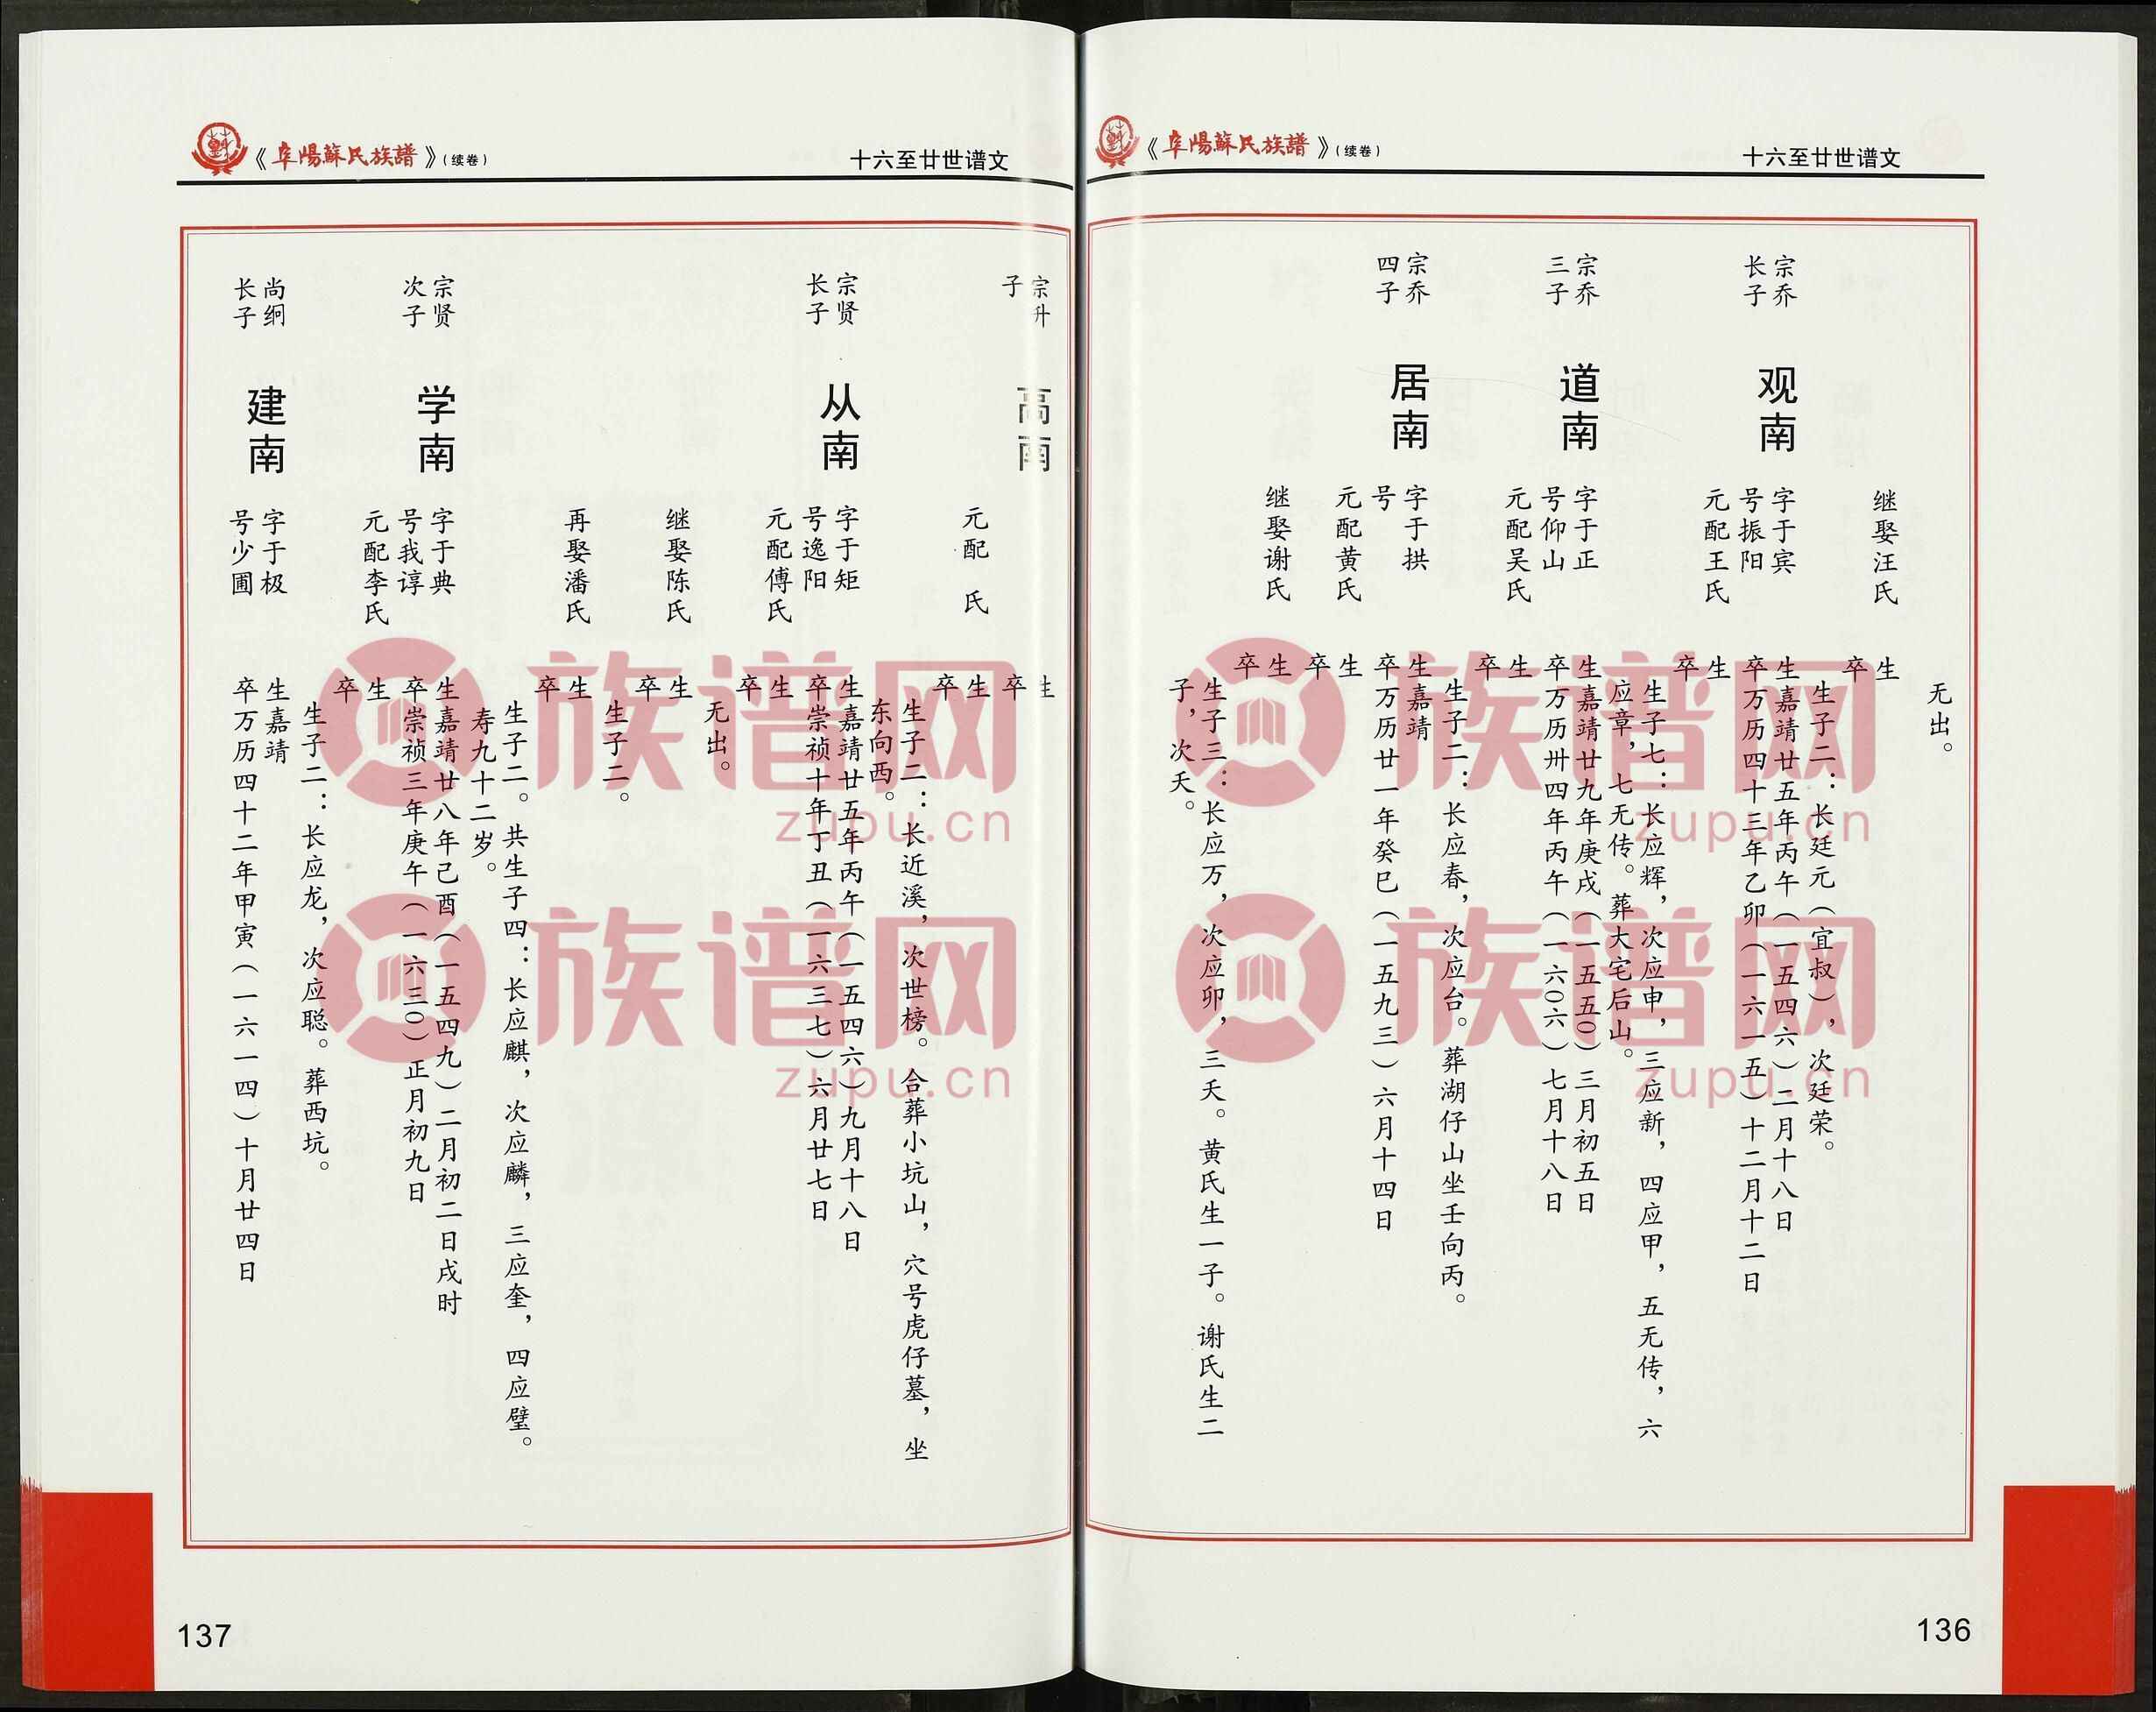 《阜陽蘇氏族譜》（续卷）
十六至廿世谱文
无出。
继娶汪氏
生
卒
生子二：长廷元（宜叔），次廷荣。
宗乔
长子
观南
字于宾
号振阳
生嘉靖廿五年丙午（一五四六）二月十八日
卒万历四十三年乙卯（一六一五）十二月十二日
元配王氏
生
卒
生子七：长应辉，次应申，三应新，四应甲，五无传，六
应章，七无传。葬大宅后山。
宗乔
三子
道南
字于正
号仰山
生嘉靖廿九年庚戌（一五五〇）三月初五日
卒万历卅四年丙午（一六〇六）七月十八日
元配吴氏
生
卒
生子二：长应春，次应台。葬湖仔山坐壬向丙。
宗乔
四子
居南
字于拱
号
生嘉靖
卒万历廿一年癸巳（一五九三）六月十四日
元配黄氏
生
卒
继娶谢氏
生
卒
生子三：长应万，次应卯，三夭。黄氏生一子。谢氏生二
子，次夭。
136
《阜陽蘇氏族譜》（续卷）
十六至廿世谱文
宗升
子
高南
生
卒
元配 氏
生
卒
生子二：长近溪，次世榜。合葬小坑山，穴号虎仔墓，坐
东向西。
宗贤
长子
从南
字于矩
号逸阳
生嘉靖廿五年丙午（一五四六）九月十八日
卒崇祯十年丁丑（一六三七）六月廿七日
元配傅氏
生
卒
无出。
继娶陈氏
生
卒
生子二。
再娶潘氏
生
卒
生子二。共生子四：长应麒，次应麟，三应奎，四应璧。
寿九十二岁。
宗贤
次子
学南
字于典
号我谆
生嘉靖廿八年己酉（一五四九）二月初二日戌时
卒崇祯三年庚午（一六三〇）正月初九日
元配李氏
生
卒
生子二：长应龙，次应聪。葬西坑。
尚䌹
长子
建南
字于极
号少圃
生嘉靖
卒万历四十二年甲寅（一六一四）十月廿四日
137
族谱网
zupu.cn
族谱网
zupu.cn
族谱网
zupu.cn
族谱网
zupu.cn